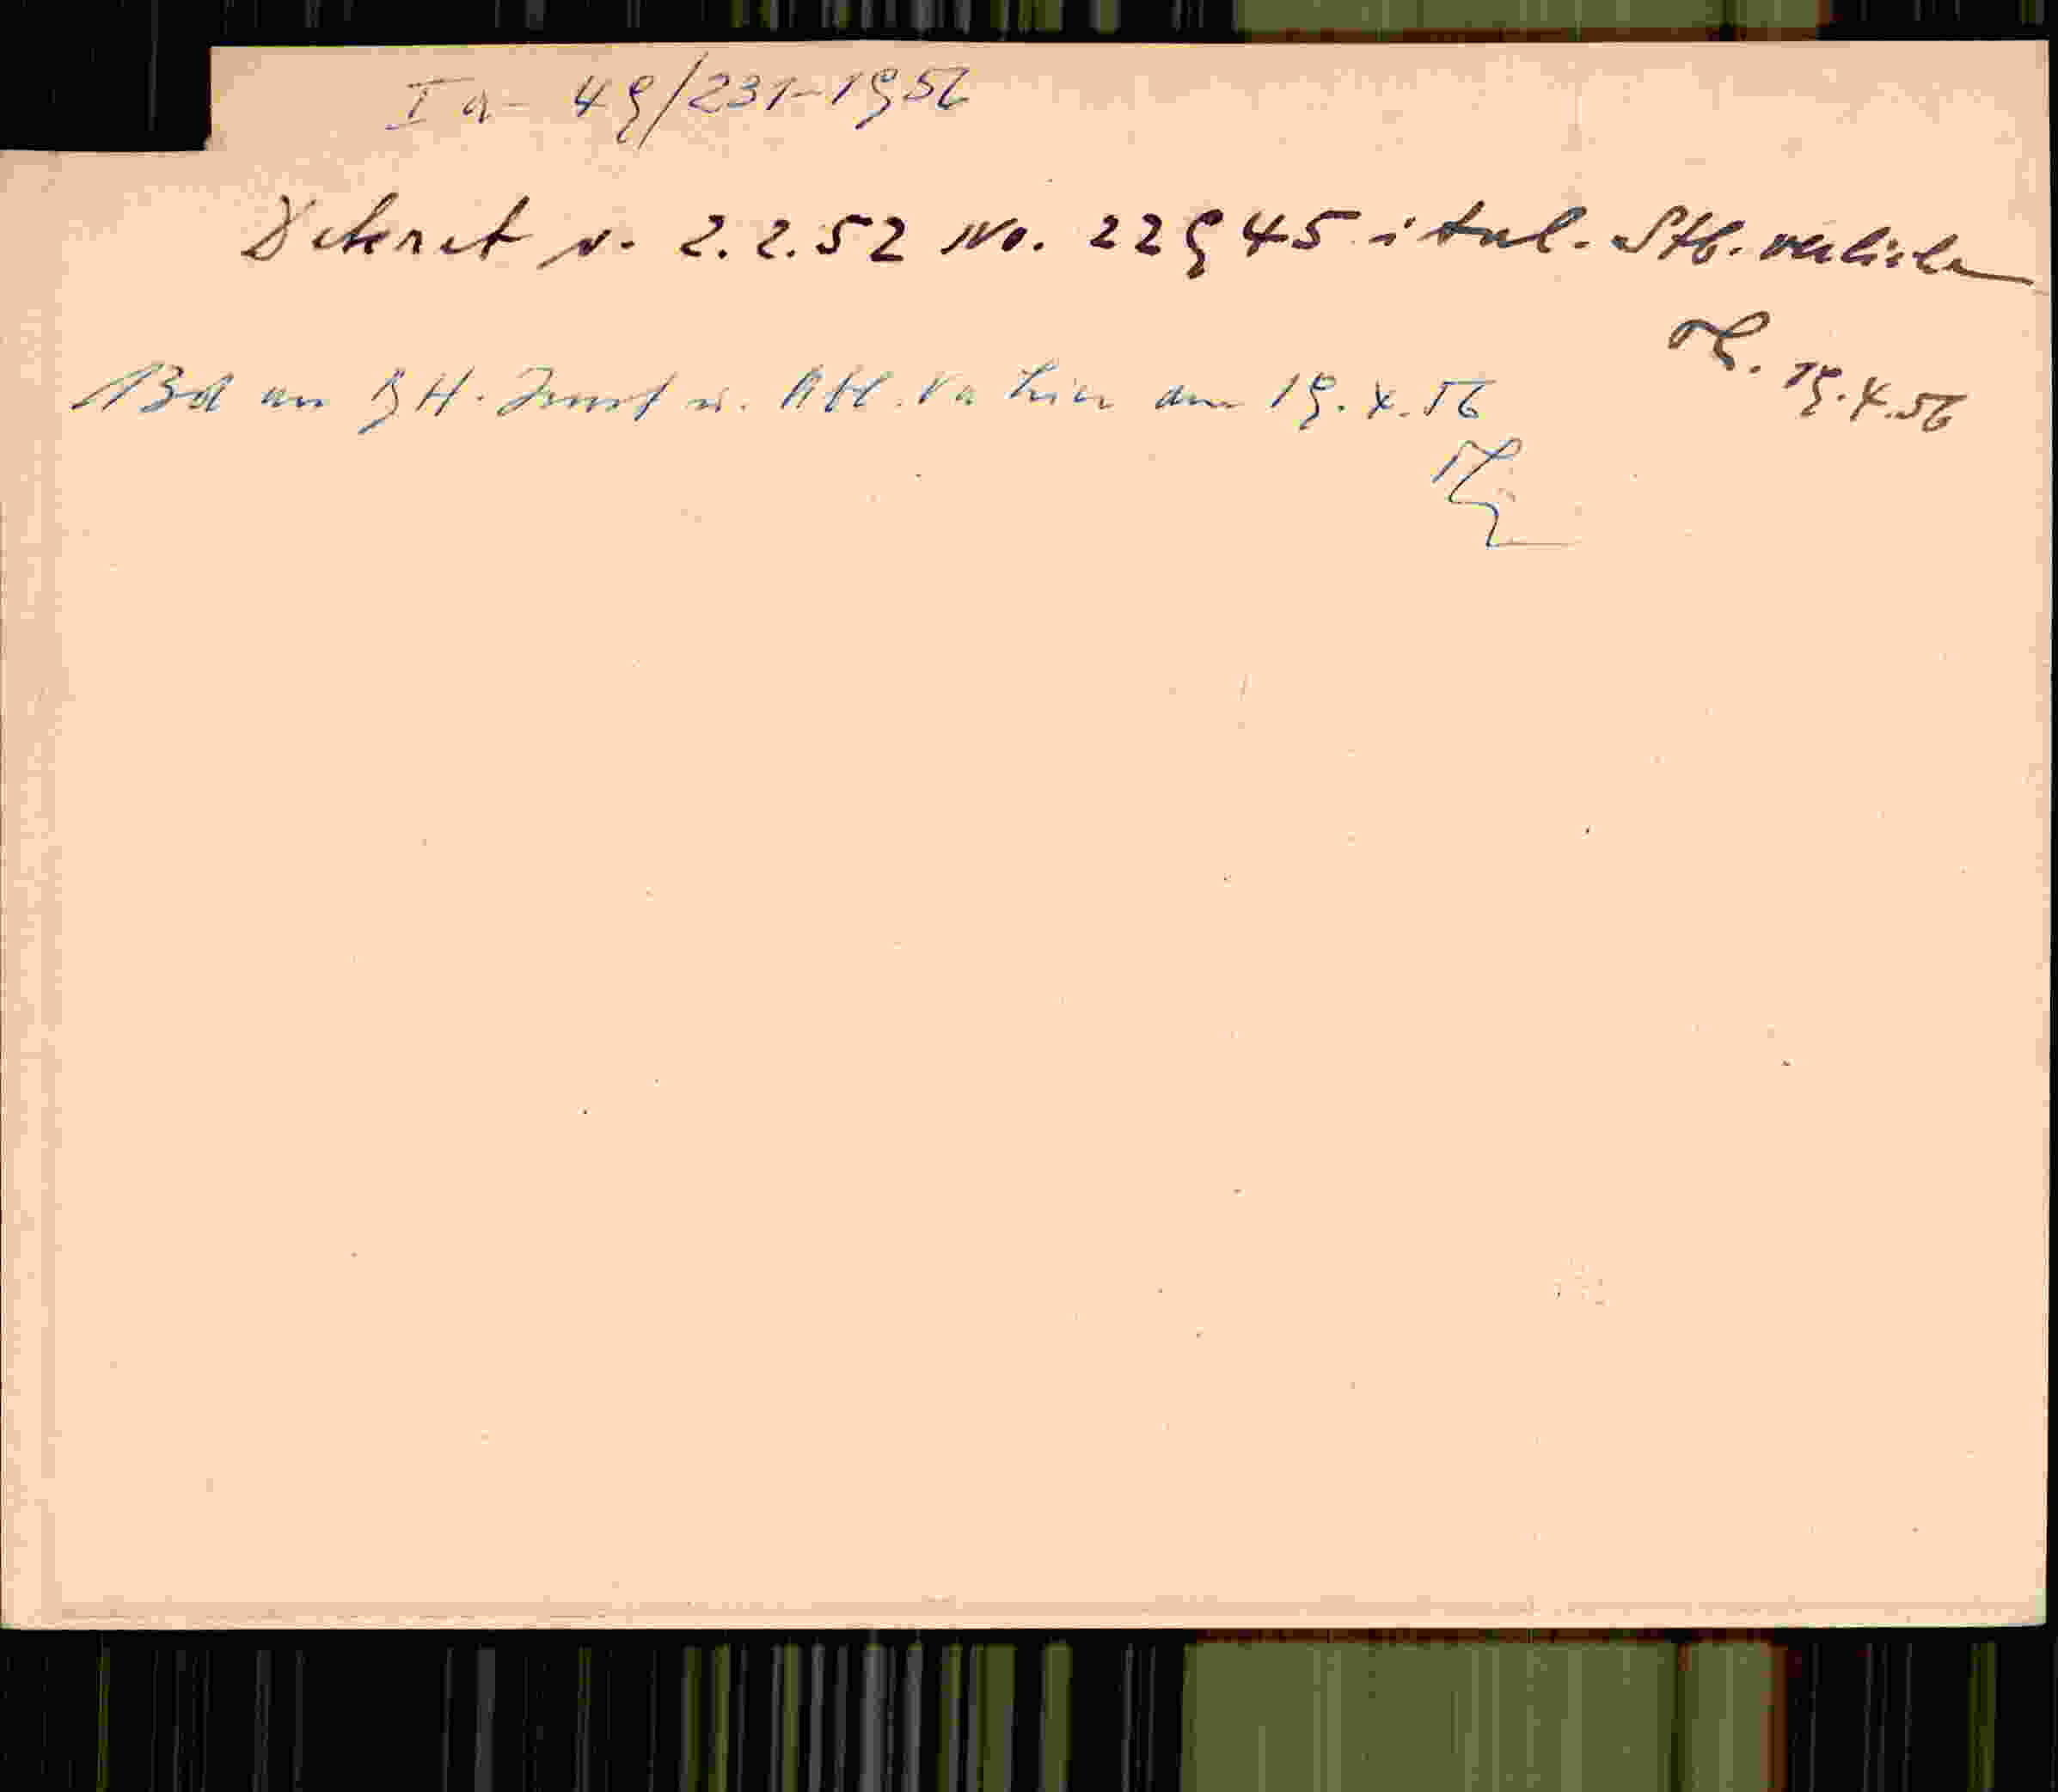 Ia - 49/231-1956
Dekret v. 2.2.52 No. 22945 ital. Stb. verliehen
19.4.56
an BH. Imst u. Abt. Va hier am 19.4.56